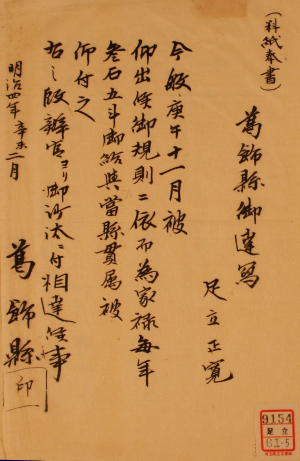 (料紙奉書)
葛飾縣御達寫
足立正寛
今般庚午十一月被
仰出候御規則ニ依而為家禄毎年
叁石五斗御給與當縣貫属被
仰付之
右之段辨官ヨリ御沙汰ニ付相達候事
明治四年辛未二月
葛飾縣
印
9154
足立
61-5